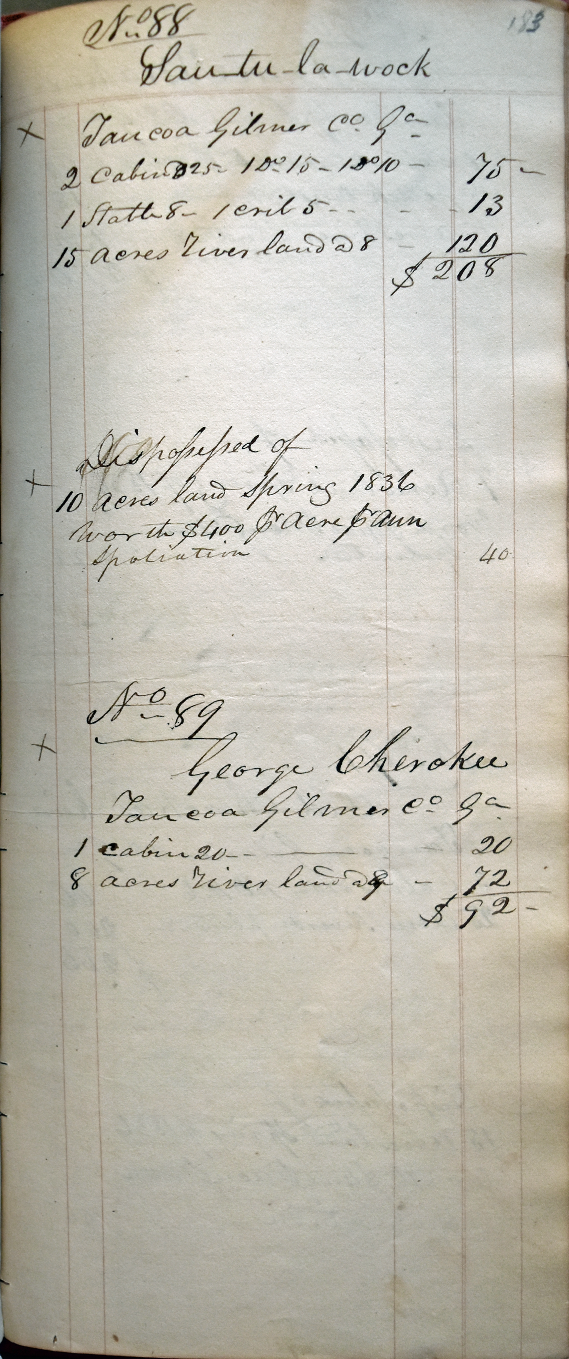 183
No 88
Sau-tu-la-wock
x Taucoa Gilmer Co Ga
2 Cabins @25- 1 Do 15- 1 Do 10 - 75 -
1 Stable 8- 1 crib 5 - - - - 13
15 acres River land @ 8 - 120
$ 208
Dispossessed of
x 10 acres land Spring 1836
worth $400 pr Acre pr Ann
Spoliation 40
No 89
x George Cherokee
Taucoa Gilmer Co Ga
1 cabin 20 - 20
8 acres River land @ 9 - 72
$ 92 -